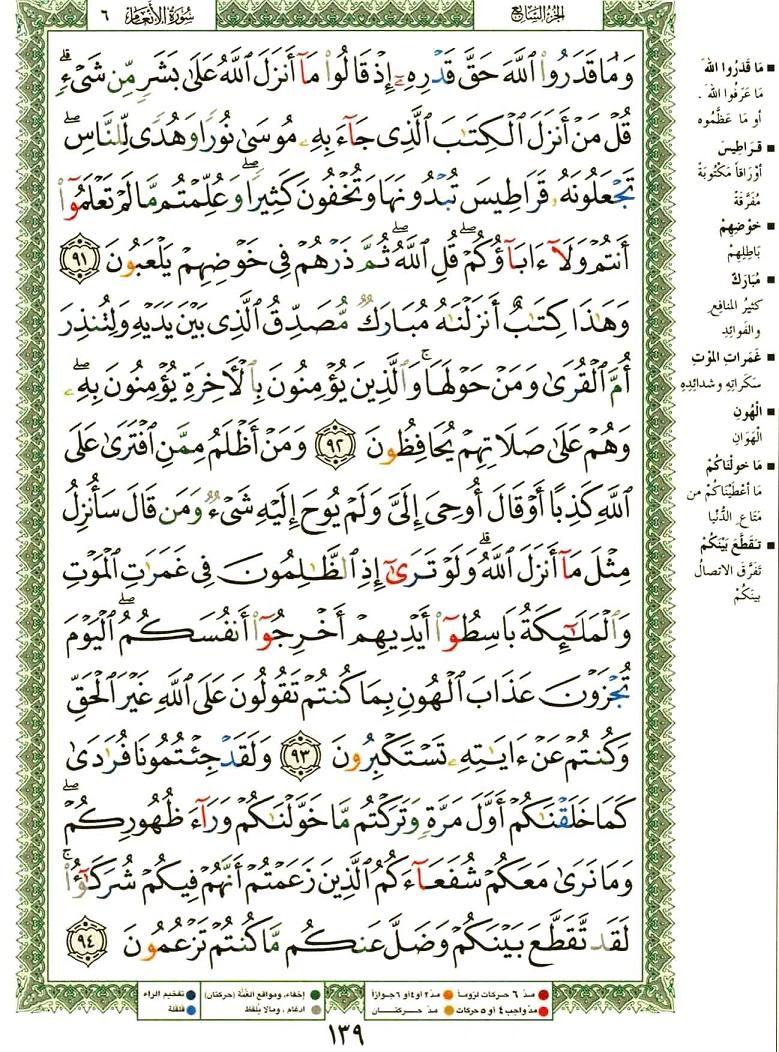 الجزء السابع
سورة الأنعام ٦
وَمَا قَدَرُوا۟ ٱللَّهَ حَقَّ قَدْرِهِۦٓ إِذْ قَالُوا۟ مَآ أَنزَلَ ٱللَّهُ عَلَىٰ بَشَرٍ مِّن شَىْءٍ ۗ
قُلْ مَنْ أَنزَلَ ٱلْكِتَـٰبَ ٱلَّذِى جَآءَ بِهِۦ مُوسَىٰ نُورًا وَهُدًى لِّلنَّاسِ ۖ
تَجْعَلُونَهُۥ قَرَاطِيسَ تُبْدُونَهَا وَتُخْفُونَ كَثِيرًا ۖ وَعُلِّمْتُم مَّا لَمْ تَعْلَمُوٓا۟
أَنتُمْ وَلَآ ءَابَآؤُكُمْ ۖ قُلِ ٱللَّهُ ۖ ثُمَّ ذَرْهُمْ فِى خَوْضِهِمْ يَلْعَبُونَ ٩١
وَهَـٰذَا كِتَـٰبٌ أَنزَلْنَـٰهُ مُبَارَكٌ مُّصَدِّقُ ٱلَّذِى بَيْنَ يَدَيْهِ وَلِتُنذِرَ
أُمَّ ٱلْقُرَىٰ وَمَنْ حَوْلَهَا ۚ وَٱلَّذِينَ يُؤْمِنُونَ بِٱلْـَٔاخِرَةِ يُؤْمِنُونَ بِهِۦ ۖ
وَهُمْ عَلَىٰ صَلَاتِهِمْ يُحَافِظُونَ ٩٢ وَمَنْ أَظْلَمُ مِمَّنِ ٱفْتَرَىٰ عَلَى
ٱللَّهِ كَذِبًا أَوْ قَالَ أُوحِىَ إِلَىَّ وَلَمْ يُوحَ إِلَيْهِ شَىْءٌ وَمَن قَالَ سَأُنزِلُ
مِثْلَ مَآ أَنزَلَ ٱللَّهُ ۗ وَلَوْ تَرَىٰٓ إِذِ ٱلظَّـٰلِمُونَ فِى غَمَرَٰتِ ٱلْمَوْتِ
وَٱلْمَلَـٰٓئِكَةُ بَاسِطُوٓا۟ أَيْدِيهِمْ أَخْرِجُوٓا۟ أَنفُسَكُمُ ۖ ٱلْيَوْمَ
تُجْزَوْنَ عَذَابَ ٱلْهُونِ بِمَا كُنتُمْ تَقُولُونَ عَلَى ٱللَّهِ غَيْرَ ٱلْحَقِّ
وَكُنتُمْ عَنْ ءَايَـٰتِهِۦ تَسْتَكْبِرُونَ ٩٣ وَلَقَدْ جِئْتُمُونَا فُرَٰدَىٰ
كَمَا خَلَقْنَـٰكُمْ أَوَّلَ مَرَّةٍ وَتَرَكْتُم مَّا خَوَّلْنَـٰكُمْ وَرَآءَ ظُهُورِكُمْ ۖ
وَمَا نَرَىٰ مَعَكُمْ شُفَعَآءَكُمُ ٱلَّذِينَ زَعَمْتُمْ أَنَّهُمْ فِيكُمْ شُرَكَـٰٓؤُا۟ ۚ
لَقَد تَّقَطَّعَ بَيْنَكُمْ وَضَلَّ عَنكُم مَّا كُنتُمْ تَزْعُمُونَ ٩٤
■ مَا قَدَرُوا الله
مَا عَرَفُوا الله .
أو مَا عَظَّمُوه
■ قَرَاطِيسَ
أوْرَاقاً مَكْتُوبَةً
مُفَرَّقَةً
■ خَوْضِهِمْ
بَاطِلِهِمْ
■ مُبَارَكٌ
كَثِيرُ المنافِعِ
والفَوائِدِ
■ غَمَراتِ المَوْتِ
سَكَرَاتِهِ وشدائِدِهِ
■ الْهُونِ
الْهَوَانِ
■ مَا خَوَّلْنَاكُمْ
مَا أعْطَيْنَاكُمْ من
مَتَاعِ الدُّنْيا
■ تَقَطَّعَ بَيْنَكُمْ
تَفَرَّقَ الاتصالُ
بينَكُمْ
مدّ ٦ حركات لزوماً ● مدّ ٢ أو ٤ أو ٦ جوازاً
مدّ واجب ٤ أو ٥ حركات ● مدّ حركتان
إخفاء، ومواقع الغُنَّة (حركتان)
ادغام، ومالا يُلفظ
تفخيم الراء
قلقلة
١٣٩